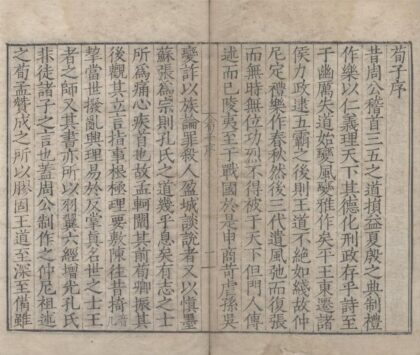 荀子序
昔周公稽古三五之道損益夏殷之典制禮
作樂以仁義理天下其德化刑政存乎詩至
于幽厲失道始變風變雅作矣平王東遷諸
侯力政逮五霸之後則王道不絕如綫故仲
尼定禮樂作春秋然後三代遺風弛而復張
而無時無位功烈不得被于天下但門人傳
述而已陵夷至于戰國於是申商苛虐孫吳
變詐以族論罪殺人盈城談說者又以慎墨
蘇張爲宗則孔氏之道幾乎息矣有志之士
所爲痛心疾首也故孟軻闢其前荀卿振其
後觀其立言指事根極理要敷陳往昔掎
挈當世撥亂興理易於反掌真名世之士王
者之師又其書亦所以羽翼六經增光孔氏
非徒諸子之言也蓋周公制作之仲尼祖述
之荀孟贊成之所以膠固王道至深至備雖